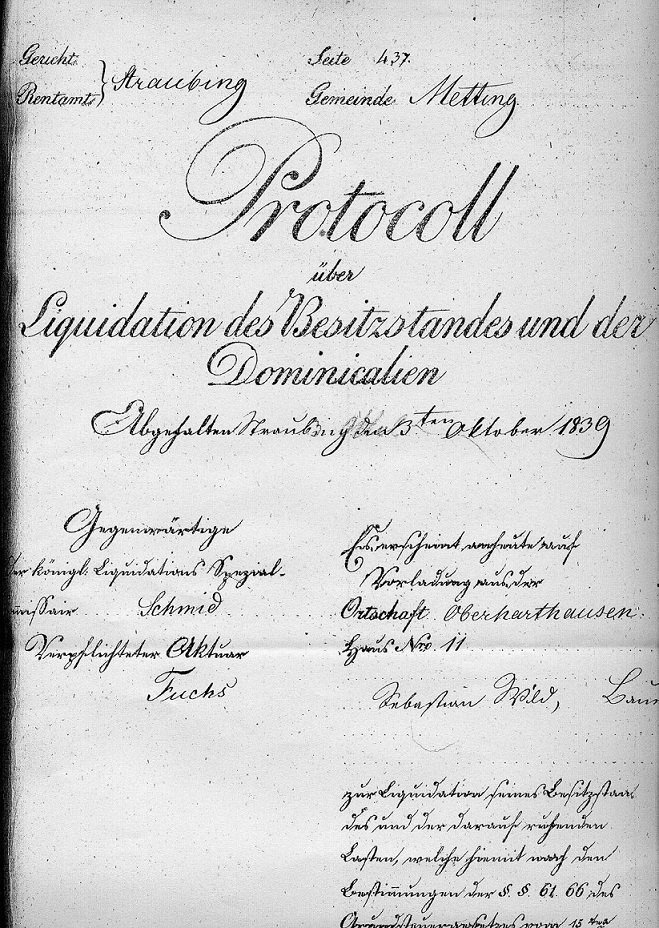 Gericht
Rentamt } Straubing
Seite 437.
Gemeinde Metting
Protocoll
über
Liquidation des Besitzstandes und der
Dominicalien
Abgehalten Straubing den 3ten Oktober 1839
Gegenwärtige
der königl: Liquidations Spezial-
missair Schmid
Verpflichteter Aktuar
Fuchs
Es erscheint anheute auf
Vorladung aus der
Ortschaft Oberharthausen.
Haus Nro 11
Sebastian Wild, Bau
zur Liquidation seines Besitzstan
des und der darauf ruhenden
Lasten, welche hiemit nach den
Bestimungen der §. §. 61. 66 des
Grundsteuergesetzes vom 15ten